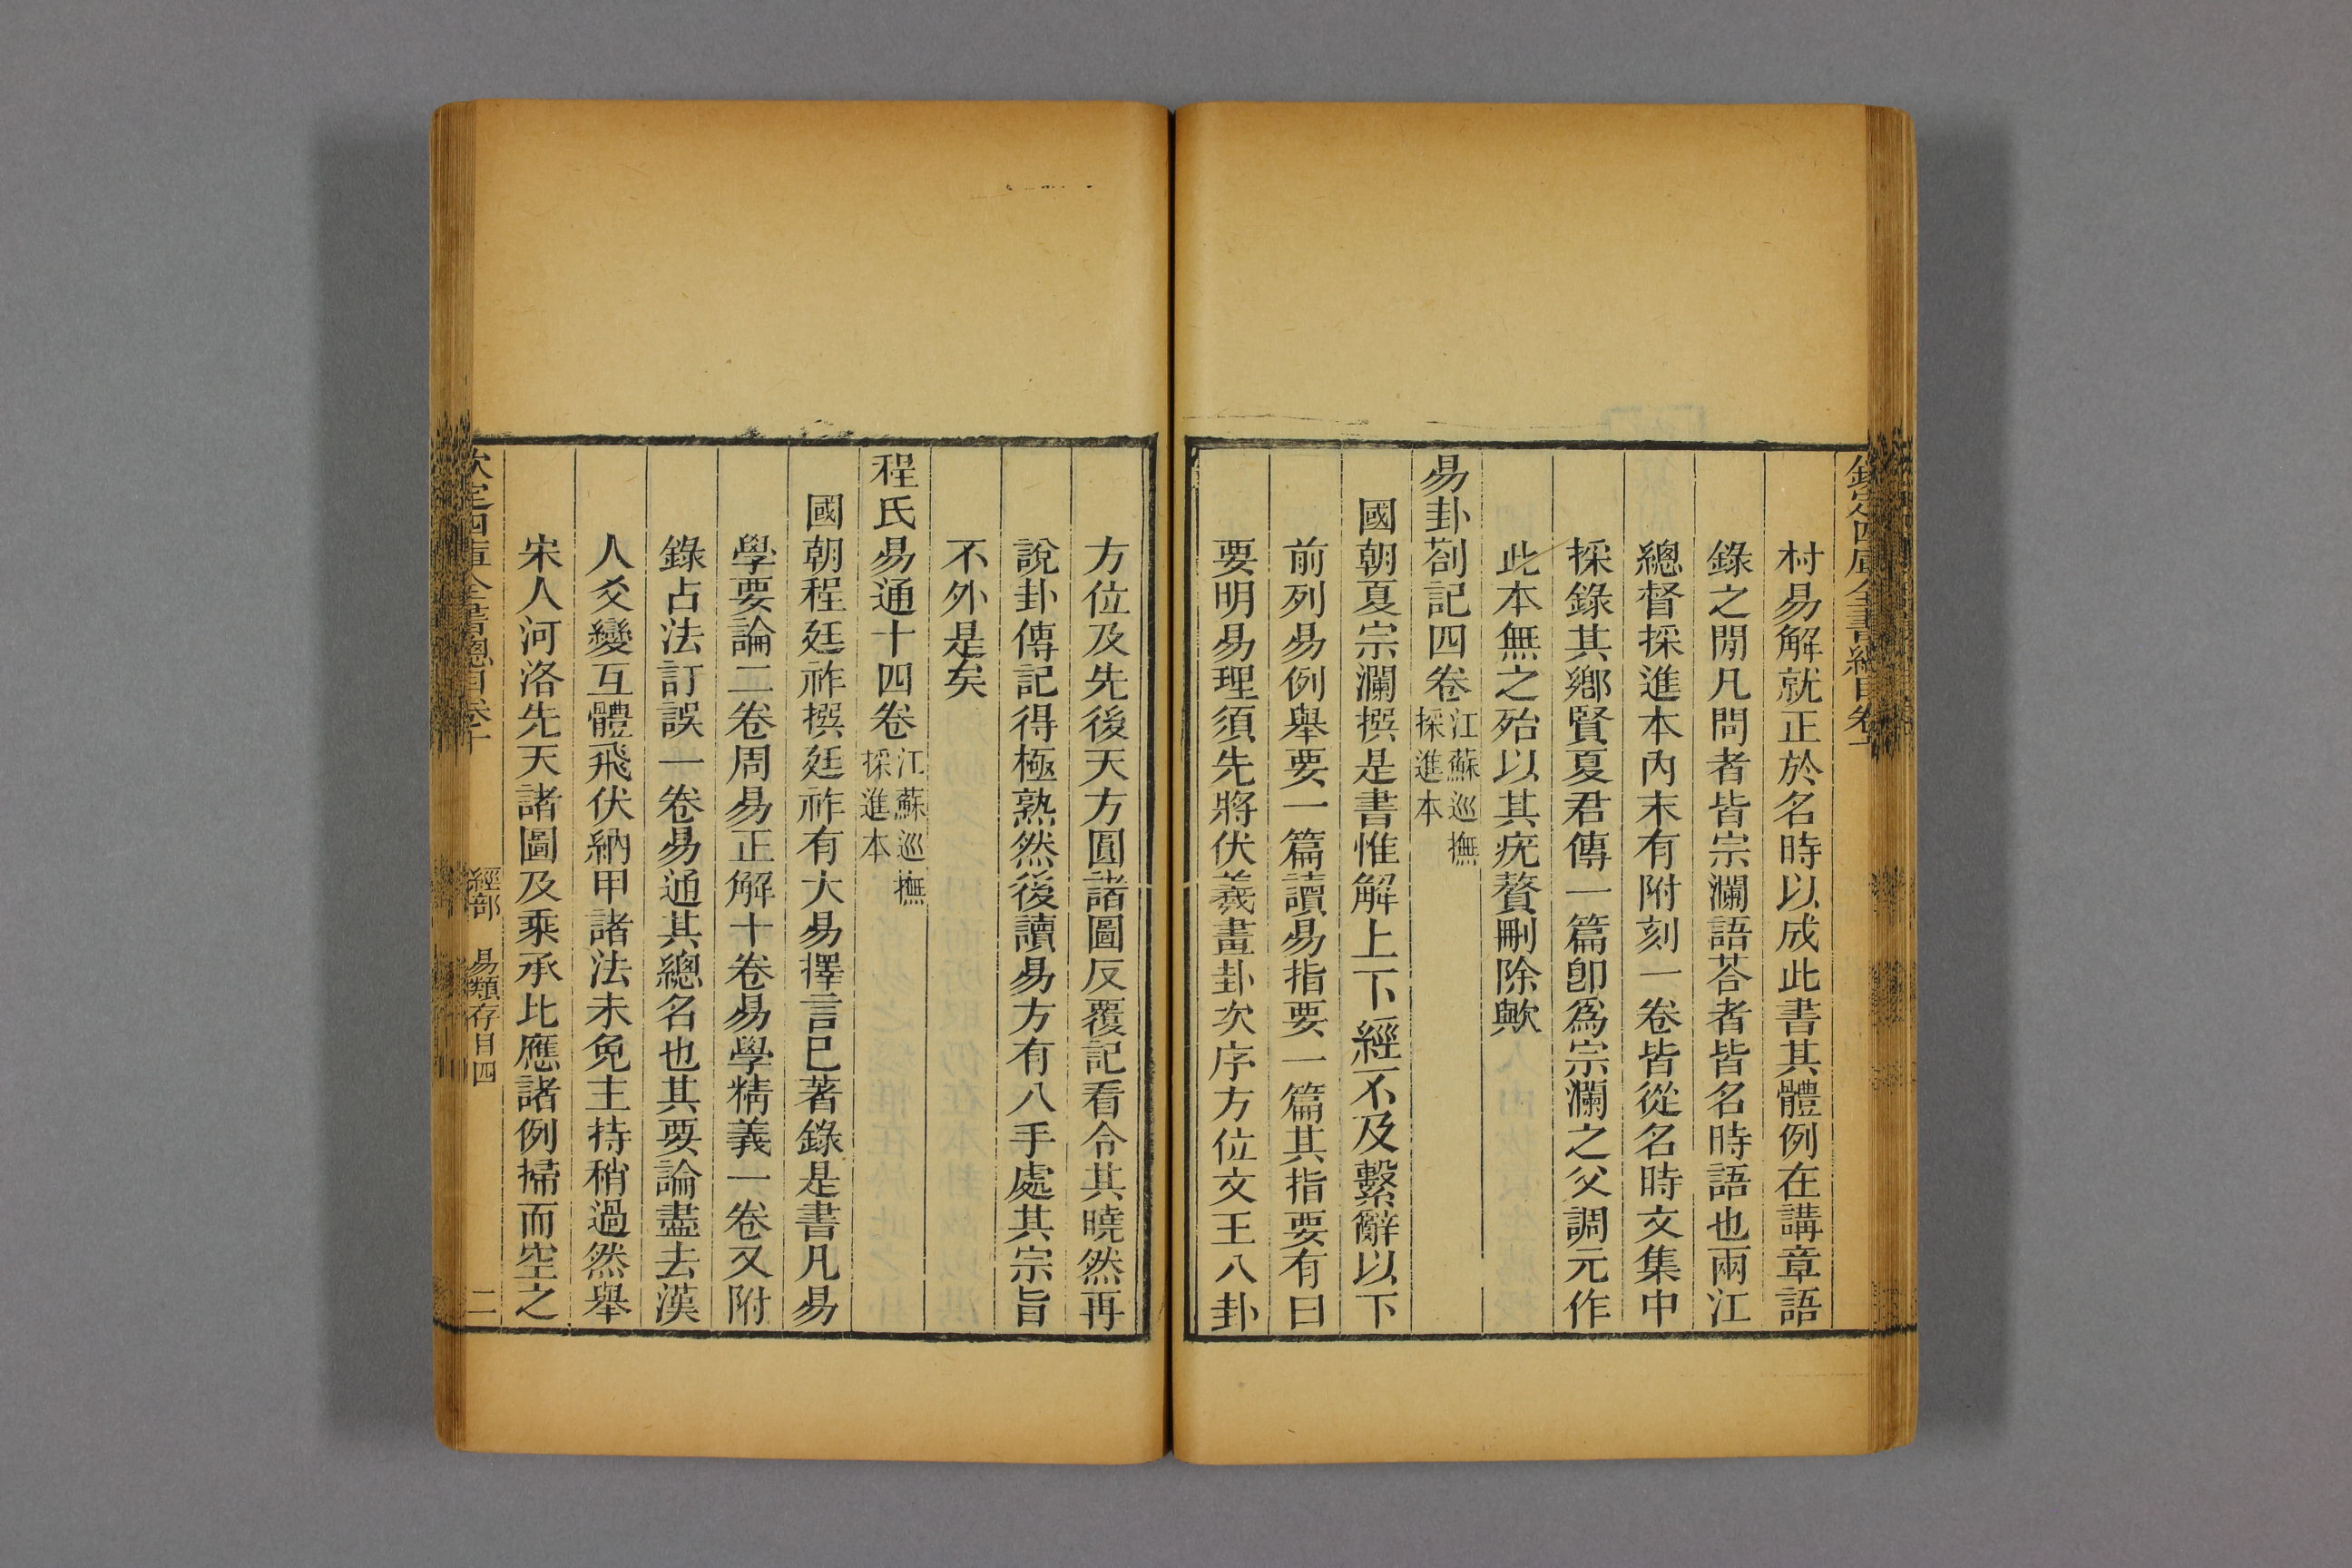 欽定四庫全書總目卷十
村易解就正於名時以成此書其體例在講章語
錄之閒凡問者皆宗瀾語荅者皆名時語也兩江
總督採進本內末有附刻一卷皆從名時文集中
採錄其鄉賢夏君傳一篇卽爲宗瀾之父調元作
此本無之殆以其疣贅刪除歟
易卦劄記四卷江蘇巡撫採進本
國朝夏宗瀾撰是書惟解上下經不及繫辭以下
前列易例舉要一篇讀易指要一篇其指要有曰
要明易理須先將伏羲畫卦次序方位文王八卦
方位及先後天方圓諸圖反覆記看令其曉然再
說卦傳記得極熟然後讀易方有入手處其宗旨
不外是矣
程氏易通十四卷江蘇巡撫採進本
國朝程廷祚撰廷祚有大易擇言已著錄是書凡易
學要論二卷周易正解十卷易學精義一卷又附
錄占法訂誤一卷易通其總名也其要論盡去漢
人爻變互體飛伏納甲諸法未免主持稍過然舉
宋人河洛先天諸圖及乘承比應諸例掃而空之
欽定四庫全書總目卷十 經部 易類存目四 二